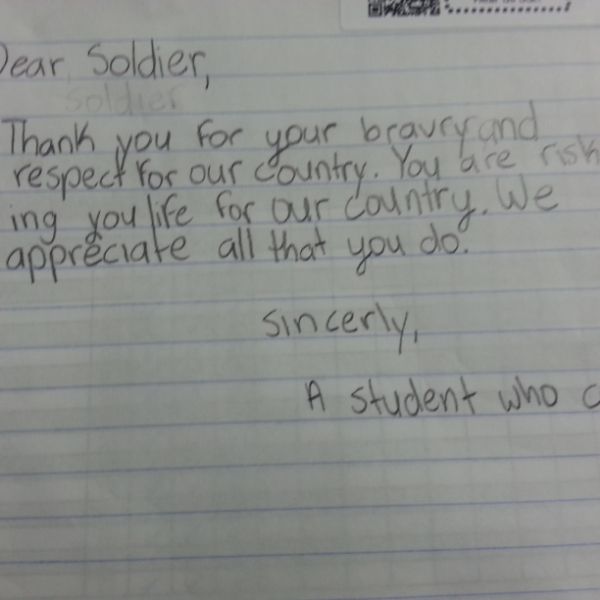 Dear Soldier,
soldier
Thank you for your bravry and
respect for our country. You are risk
ing you life for our country. We
appreciate all that you do.
sincerly,
A student who c